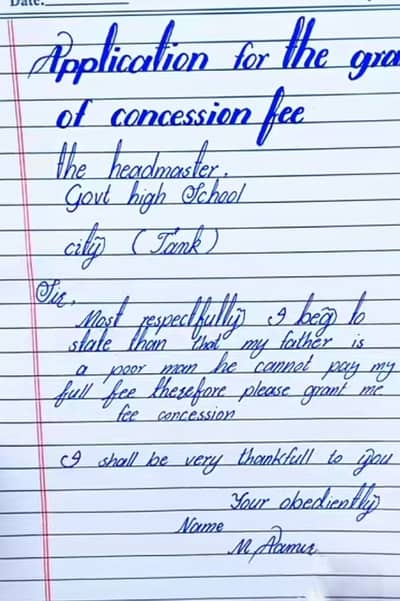 Date:
Application for the gra
of concession fee
the headmaster.
Govt high School
city (Tank)
Sir,
Most respectfully I beg to
state than that my father is
a poor man he cannot pay my
full fee therefore please grant me
fee concession
I shall be very thankfull to you
Your obediently
Name
M Aamir